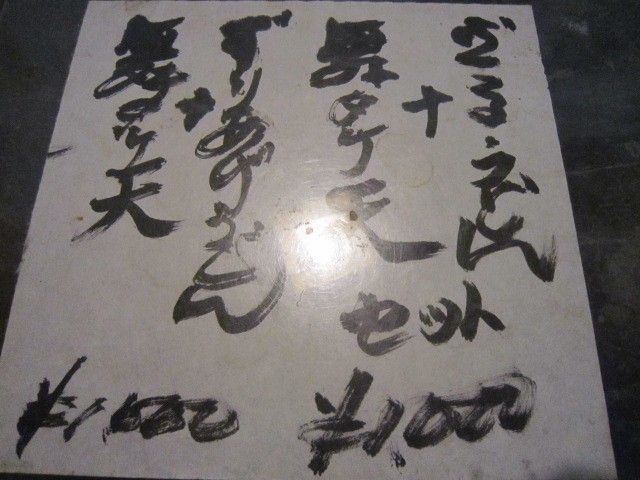 ざるうどん
+
舞茸天
セット
¥1,000
ずりあげうどん
+
舞茸天
¥1,000